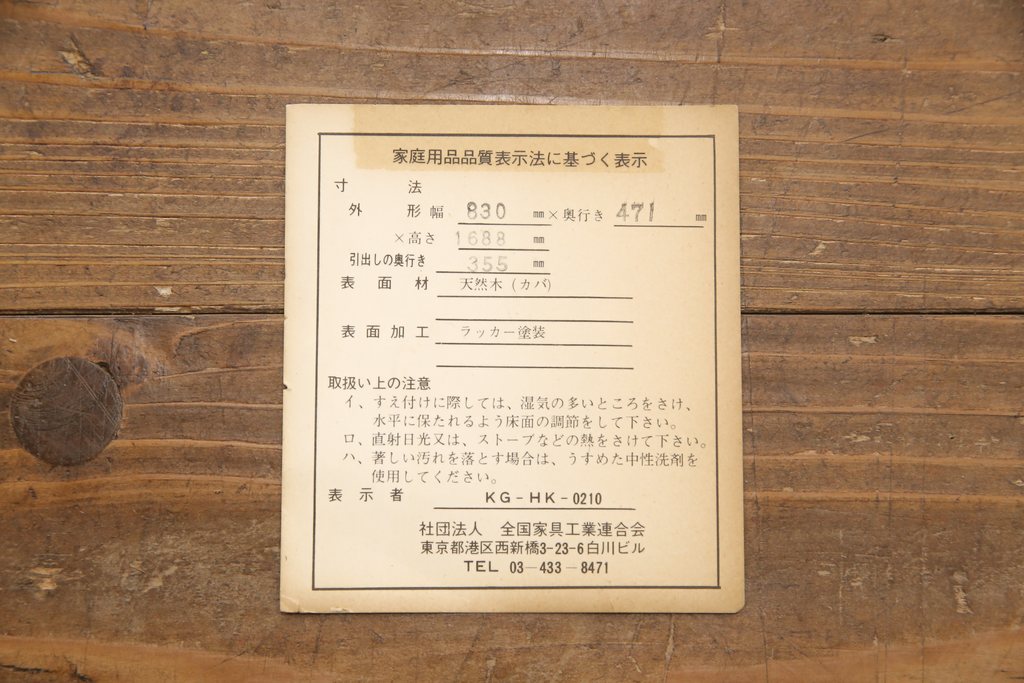 家庭用品品質表示法に基づく表示
寸法
外形 幅 830 ㎜×奥行き 471 ㎜
×高さ 1688 ㎜
引出しの奥行き 355 ㎜
表面材 天然木(カバ)
表面加工 ラッカー塗装
取扱い上の注意
イ、すえ付けに際しては、湿気の多いところをさけ、
水平に保たれるよう床面の調節をして下さい。
ロ、直射日光又は、ストーブなどの熱をさけて下さい。
ハ、著しい汚れを落とす場合は、うすめた中性洗剤を
使用してください。
表示者 KG-HK-0210
社団法人 全国家具工業連合会
東京都港区西新橋3-23-6白川ビル
TEL 03-433-8471